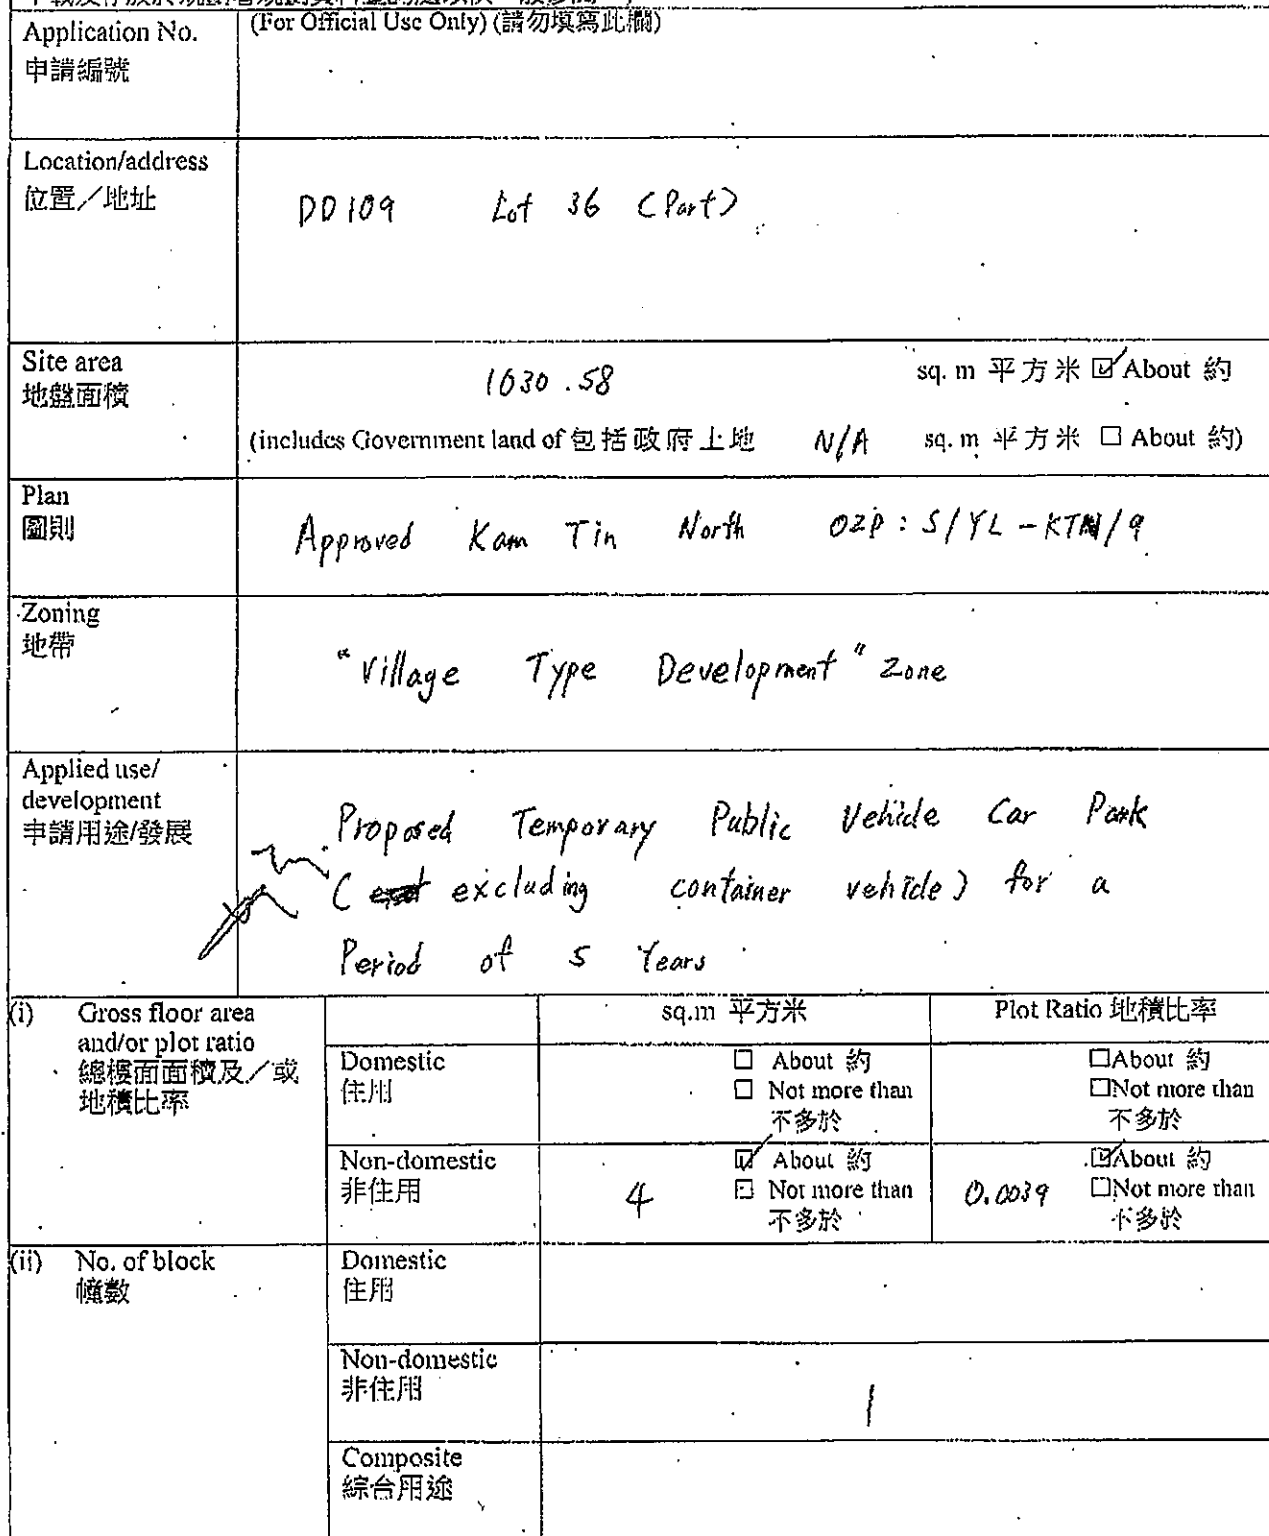 Application No.
申請編號
(For Official Use Only) (請勿填寫此欄)
Location/address
位置／地址
DD109 Lot 36 (Part)
Site area
地盤面積
1030.58 sq. m 平方米 ☑ About 約
(includes Government land of 包括政府土地 N/A sq. m 平方米 ☐ About 約)
Plan
圖則
Approved Kam Tin North OZP : S/YL-KTN/9
Zoning
地帶
"Village Type Development" Zone
Applied use/
development
申請用途/發展
Proposed Temporary Public Vehicle Car Park
( excluding container vehicle) for a
Period of 5 Years
(i) Gross floor area
and/or plot ratio
總樓面面積及／或
地積比率
sq.m 平方米 Plot Ratio 地積比率
Domestic
住用
☐ About 約
☐ Not more than
不多於
☐About 約
☐Not more than
不多於
Non-domestic
非住用
4
☑ About 約
☐ Not more than
不多於
0.0039
☑About 約
☐Not more than
不多於
(ii) No. of block
幢數
Domestic
住用
Non-domestic
非住用
1
Composite
綜合用途